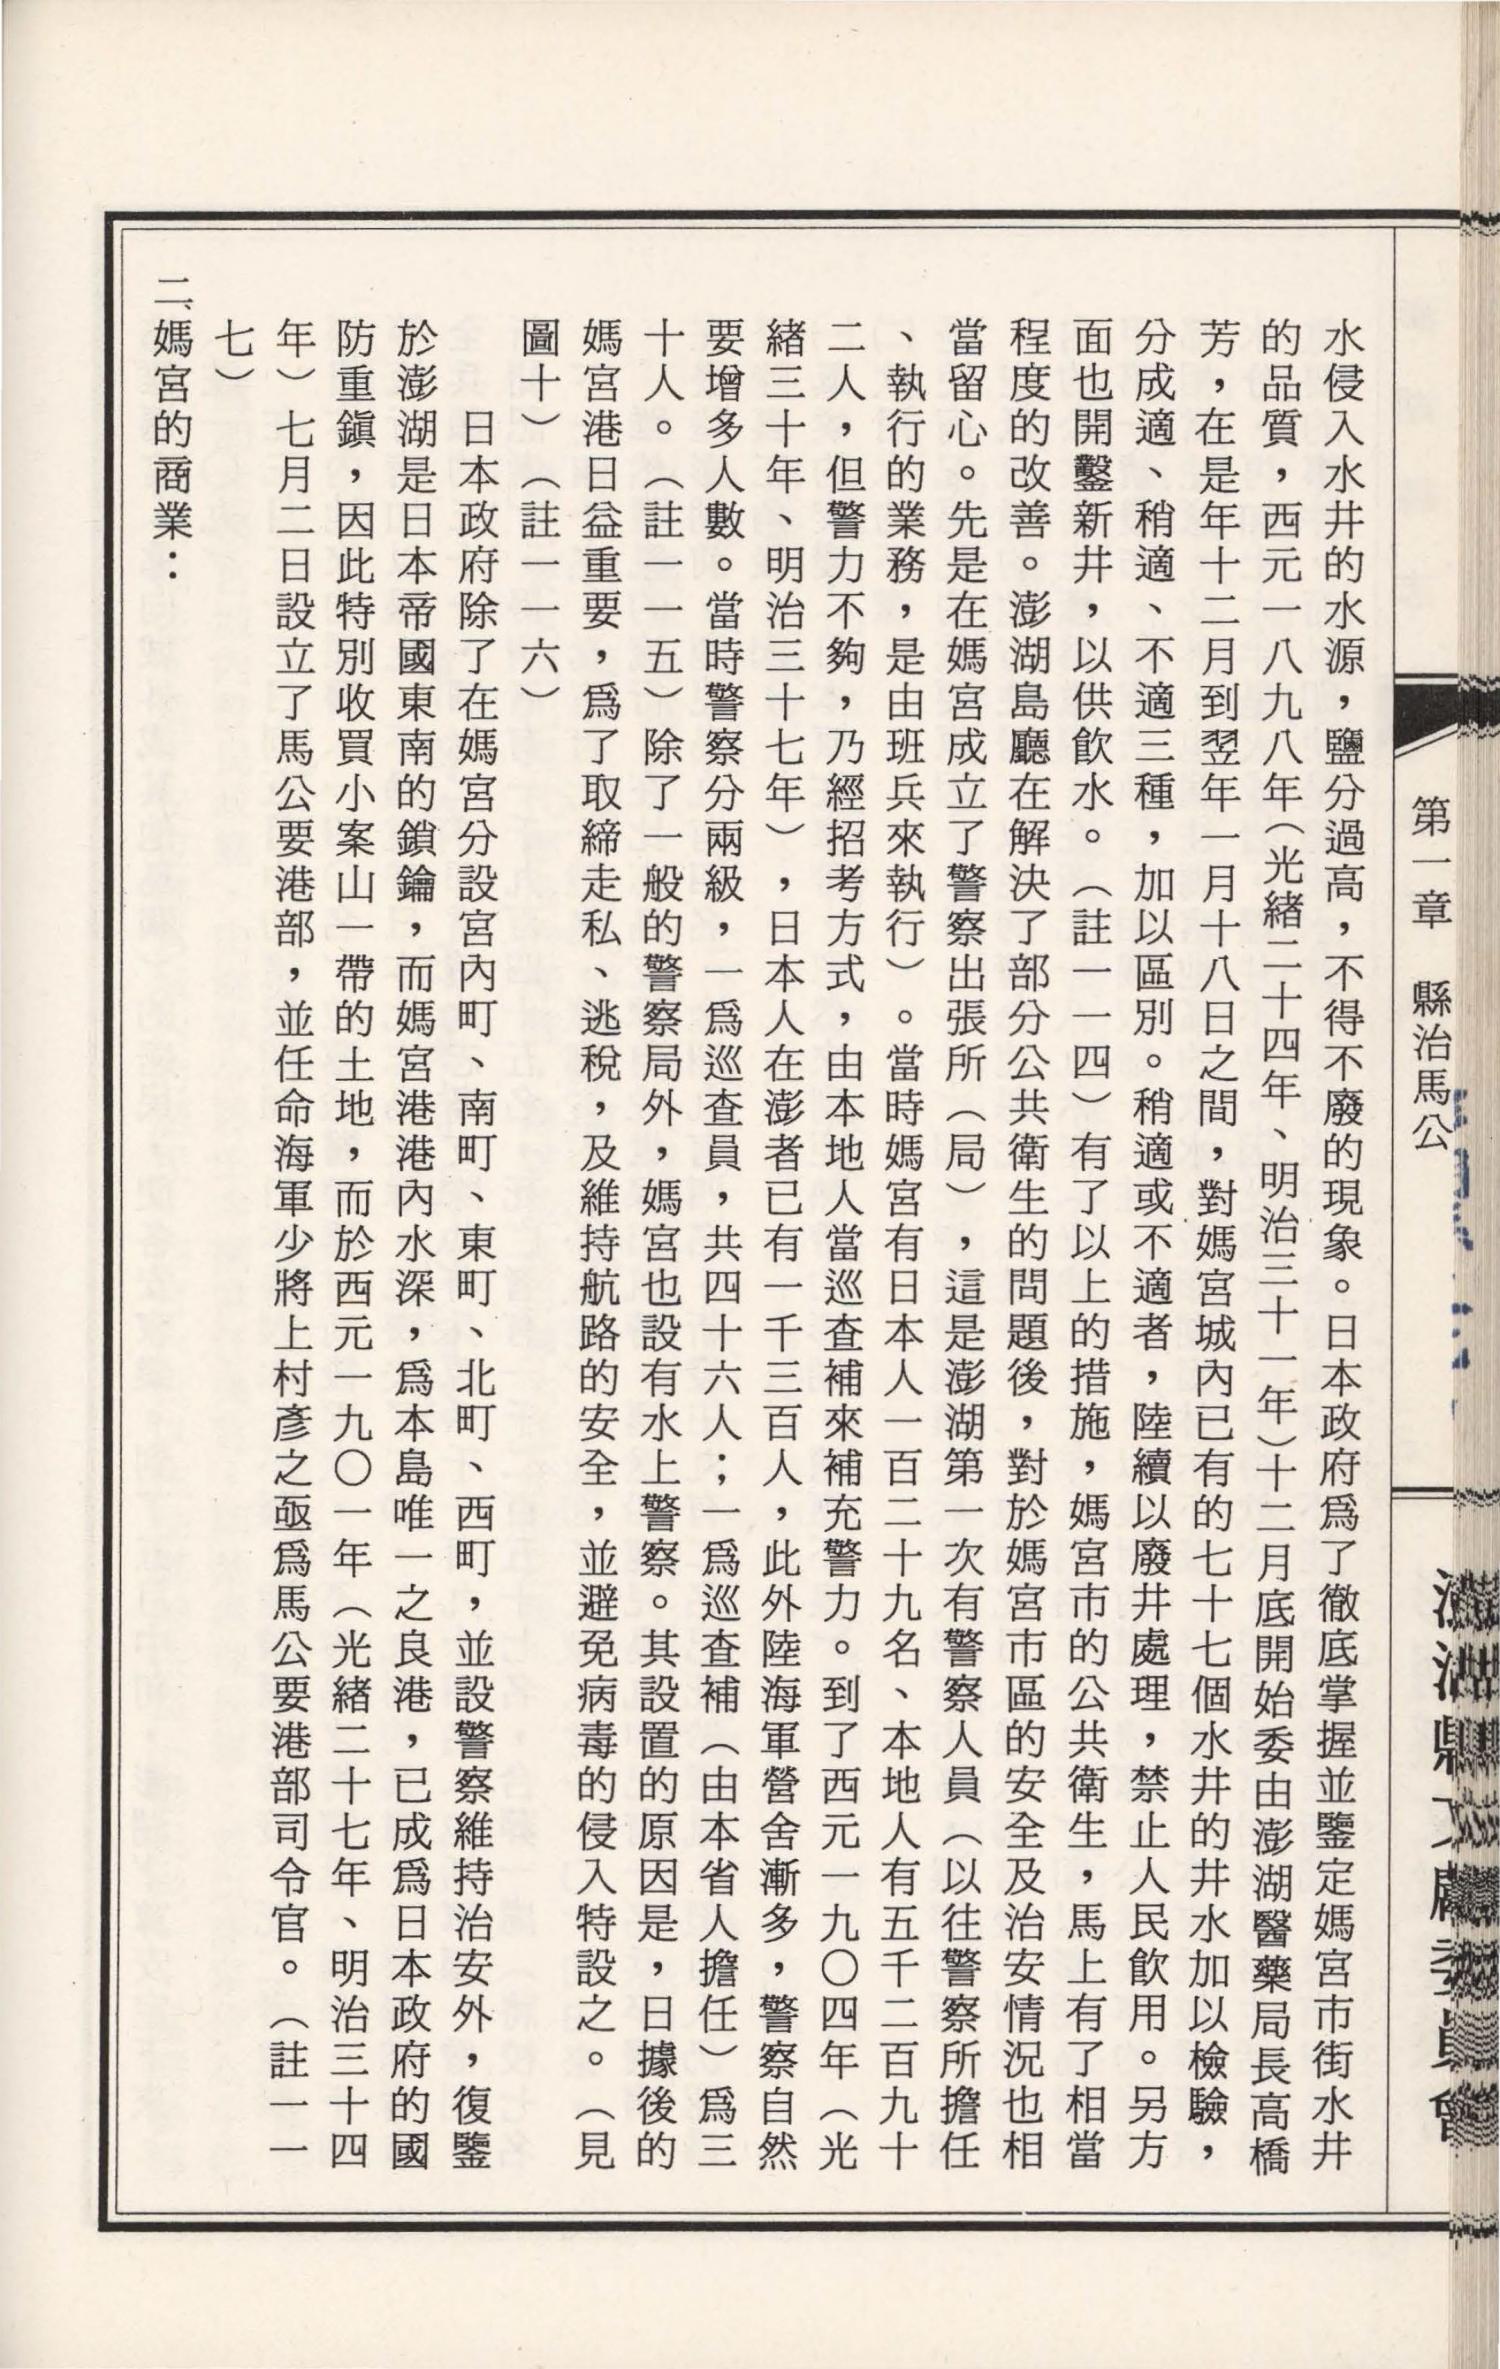 第一章　縣治馬公
水侵入水井的水源，鹽分過高，不得不廢的現象。日本政府爲了徹底掌握並鑒定媽宮市街水井
的品質，西元一八九八年（光緒二十四年、明治三十一年）十二月底開始委由澎湖醫藥局長高橋
芳，在是年十二月到翌年一月十八日之間，對媽宮城內已有的七十七個水井的井水加以檢驗，
分成適、稍適、不適三種，加以區別。稍適或不適者，陸續以廢井處理，禁止人民飲用。另方
面也開鑿新井，以供飲水。（註一一四）有了以上的措施，媽宮市的公共衛生，馬上有了相當
程度的改善。澎湖島廳在解決了部分公共衛生的問題後，對於媽宮市區的安全及治安情況也相
當留心。先是在媽宮成立了警察出張所（局），這是澎湖第一次有警察人員（以往警察所擔任
、執行的業務，是由班兵來執行）。當時媽宮有日本人一百二十九名、本地人有五千二百九十
二人，但警力不夠，乃經招考方式，由本地人當巡查補來補充警力。到了西元一九〇四年（光
緒三十年、明治三十七年），日本人在澎者已有一千三百人，此外陸海軍營舍漸多，警察自然
要增多人數。當時警察分兩級，一爲巡查員，共四十六人；一爲巡查補（由本省人擔任）爲三
十人。（註一一五）除了一般的警察局外，媽宮也設有水上警察。其設置的原因是，日據後的
媽宮港日益重要，爲了取締走私、逃稅，及維持航路的安全，並避免病毒的侵入特設之。（見
圖十）（註一一六）
日本政府除了在媽宮分設宮內町、南町、東町、北町、西町，並設警察維持治安外，復鑒
於澎湖是日本帝國東南的鎖鑰，而媽宮港港內水深，爲本島唯一之良港，已成爲日本政府的國
防重鎭，因此特別收買小案山一帶的土地，而於西元一九〇一年（光緒二十七年、明治三十四
年）七月二日設立了馬公要港部，並任命海軍少將上村彥之亟爲馬公要港部司令官。（註一一
七）
二、媽宮的商業：